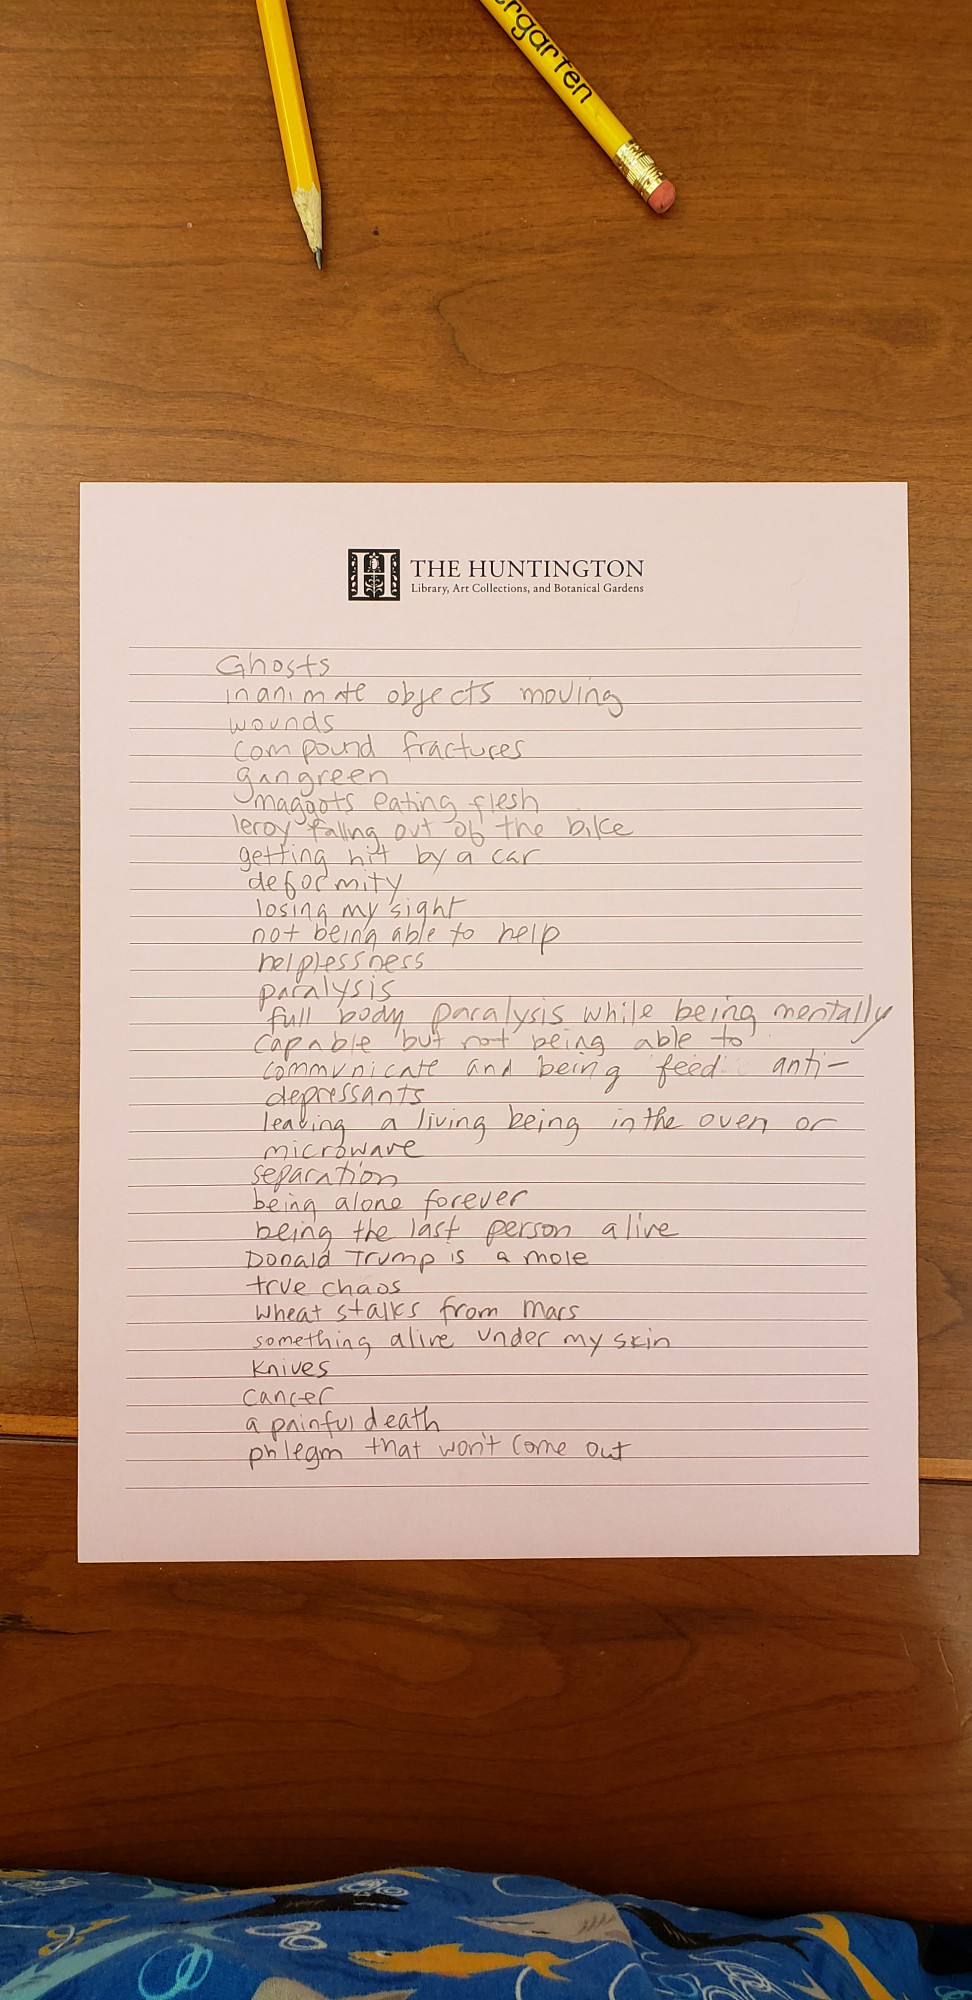 ergarten
THE HUNTINGTON
Library, Art Collections, and Botanical Gardens
Ghosts
inanimate objects moving
wounds
compound fractures
gangreen
maggots eating flesh
leroy falling out of the bike
getting hit by a car
deformity
losing my sight
not being able to help
helplessness
paralysis
full body paralysis while being mentally
capable but not being able to
communicate and being feed anti-
depressants
leaving a living being in the oven or
microwave
separation
being alone forever
being the last person alive
Donald Trump is a mole
true chaos
wheat stalks from mars
something alive under my skin
knives
cancer
a painful death
phlegm that won't come out